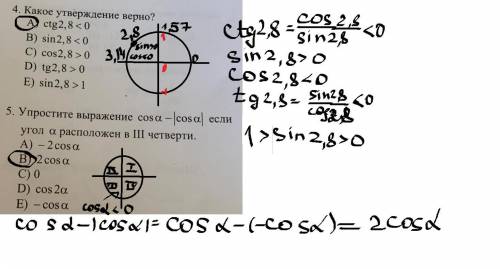 4. Какое утверждение верно?
A) ctg2,8 < 0
B) sin2,8 < 0
C) cos2,8 > 0
D) tg2,8 > 0
E) sin2,8 > 1
1,57
2,8
sin>0
cos<0
3,14
0
ctg2,8 = cos2,8/sin2,8 < 0
sin2,8 > 0
cos2,8 < 0
tg2,8 = sin2,8/cos2,8 < 0
1 > sin2,8 > 0
5. Упростите выражение cosα – |cosα| если
угол α расположен в III четверти.
A) – 2cosα
B) 2cosα
C) 0
D) cos2α
E) – cosα
II I
III IV
cosα < 0
cosα - |cosα| = cosα - (-cosα) = 2cosα